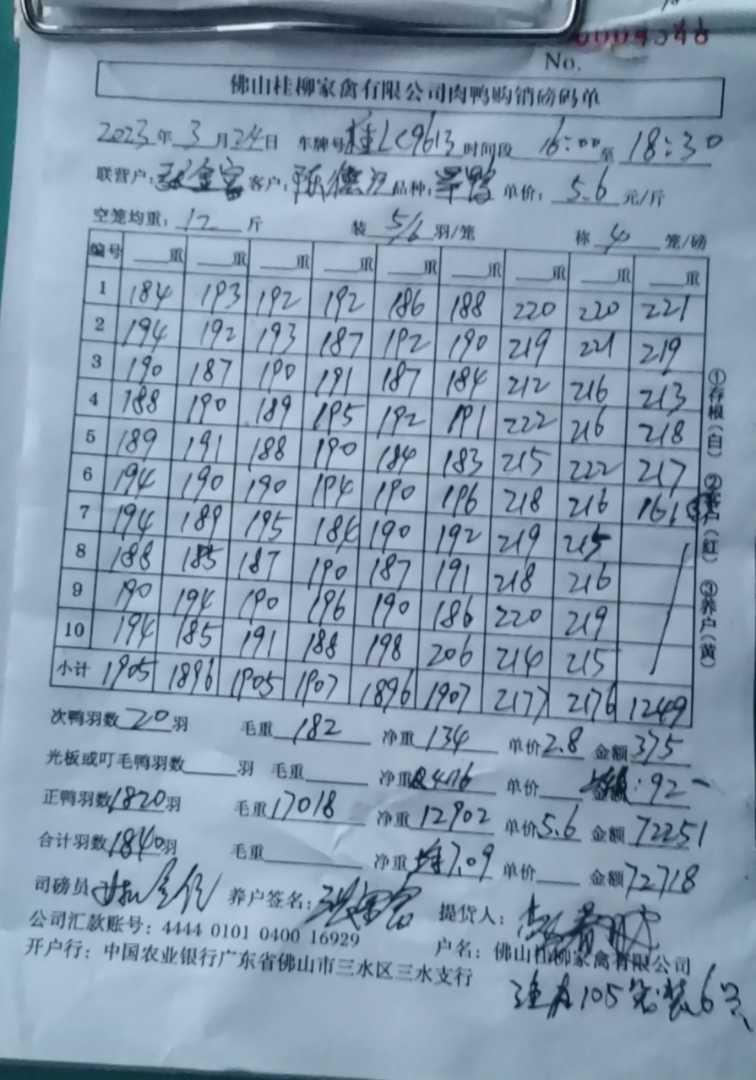 No. 0004548
佛山桂柳家禽有限公司肉鸭购销磅码单
2023年 3月 24日 车牌号 桂LC9613 时间段 16:00 至 18:30
联营户: 客户: 品种: 单价: 5.6 元/斤
空笼均重: 12 斤 装 5/6 羽/笼 称 4 笼/磅
编号 重 重 重 重 重 重 重 重 重
1 184 193 192 192 186 188 220 220 221
2 194 192 193 187 192 190 219 221 219
3 190 187 190 191 187 184 212 216 213
4 188 190 189 195 192 191 222 216 218
5 189 191 188 190 184 183 215 222 217
6 194 190 190 194 190 196 218 216 161
7 194 189 195 186 190 192 219 215
8 188 185 187 190 187 191 218 216
9 190 194 190 196 190 186 220 219
10 194 185 191 188 198 206 214 215
小计 1905 1896 1905 1907 1896 1907 2177 2176 1249
①存根(白) ②客户(红) ③养户(黄)
次鸭羽数 20 羽 毛重 182 净重 134 单价 2.8 金额 375
光板或叮毛鸭羽数 羽 毛重 净重 单价 92
正鸭羽数 1820 羽 毛重 17018 净重 12902 单价 5.6 金额 72251
合计羽数 1840 羽 毛重 净重 7.09 单价 金额 72718
司磅员 养户签名: 提货人:
公司汇款账号: 4444 0101 0400 16929 户名: 佛山桂柳家禽有限公司
开户行: 中国农业银行广东省佛山市三水区三水支行
105笼装6只